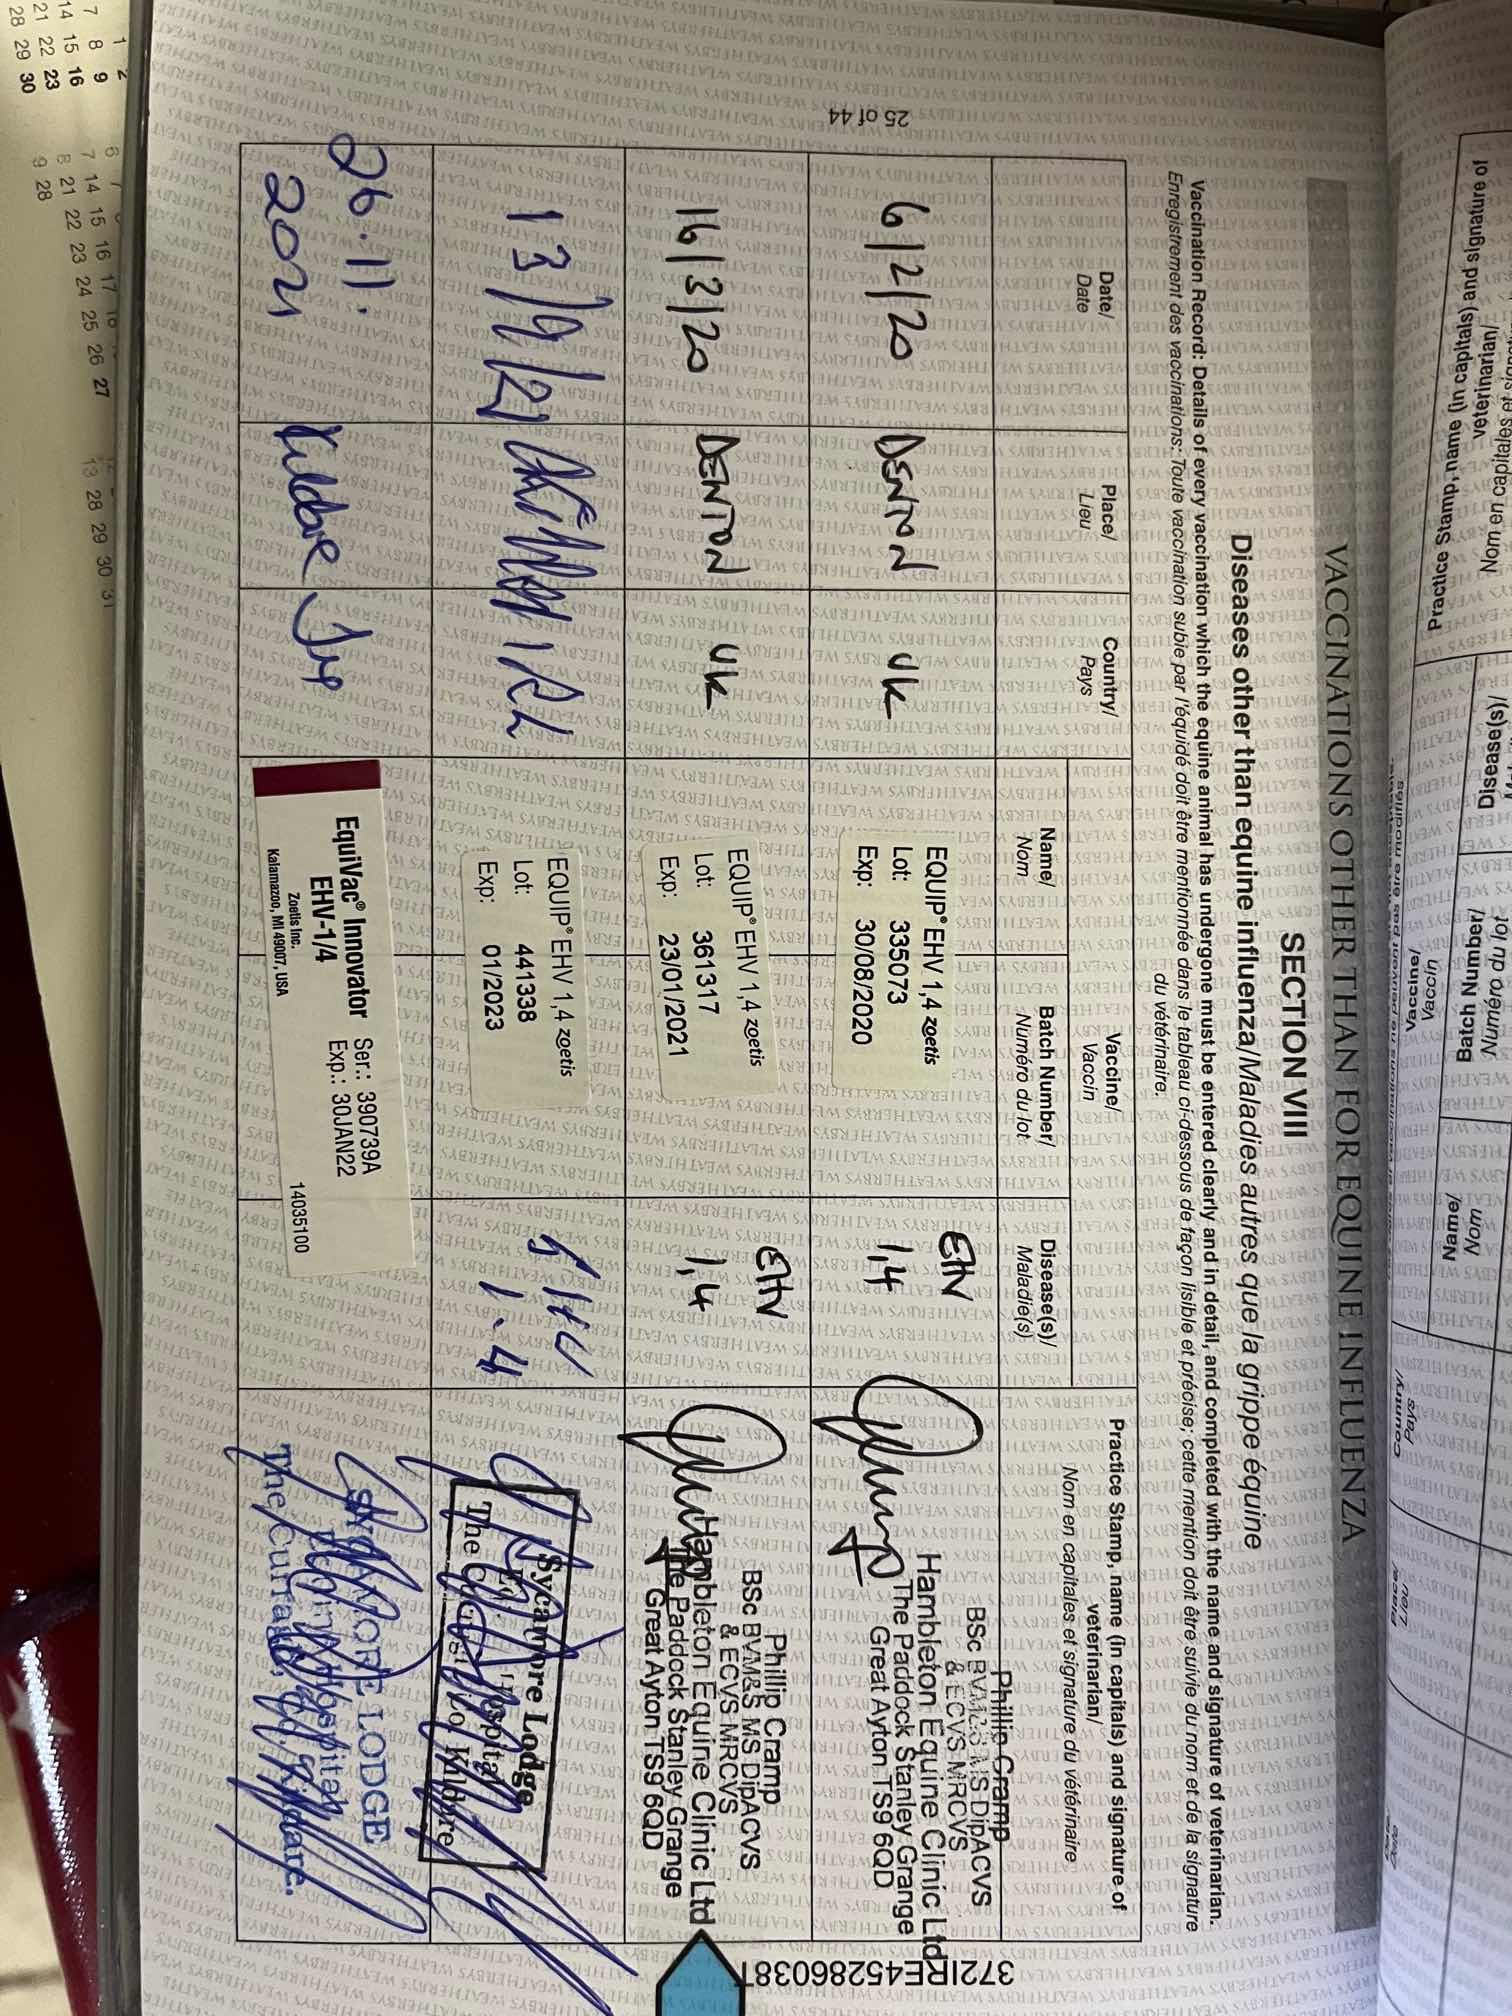 VACCINATIONS OTHER THAN FOR EQUINE INFLUENZA
SECTION VIII
Diseases other than equine influenza/Maladies autres que la grippe équine
Vaccination Record: Details of every vaccination which the equine animal has undergone must be entered clearly and in detail, and completed with the name and signature of veterinarian.
Enregistrement des vaccinations: Toute vaccination subie par l'équidé doit être mentionnée dans le tableau ci-dessous de façon lisible et précise; cette mention doit être suivie du nom et de la signature
du vétérinaire.
Date/
Date
Place/
Lieu
Country/
Pays
Vaccine/
Vaccin
Name/
Nom
Batch Number/
Numéro du lot
Disease(s)/
Maladie(s)
Practice Stamp, name (in capitals) and signature of
veterinarian/
Nom en capitales et signature du vétérinaire
6/2/20
DENTON
UK
EQUIP® EHV 1,4 zoetis
Lot: 335073
Exp: 30/08/2020
EHV
1,4
Phillip Cramp
BSc BVM&S MS DipACVS
& ECVS MRCVS
Hambleton Equine Clinic Ltd
The Paddock Stanley Grange
Great Ayton TS9 6QD
16/3/20
DENTON
UK
EQUIP® EHV 1,4 zoetis
Lot: 361317
Exp: 23/01/2021
EHV
1,4
Phillip Cramp
BSc BVM&S MS DipACVS
& ECVS MRCVS
Hambleton Equine Clinic Ltd
The Paddock Stanley Grange
Great Ayton TS9 6QD
13/9/21
EQUIP® EHV 1,4 zoetis
Lot: 441338
Exp: 01/2023
EHV
1.4
Sycamore Lodge
Hospital
The Curragh Co. Kildare
26.11.
2021
Kildare
EquiVac® Innovator
EHV-1/4
Zoetis Inc.
Kalamazoo, MI 49007, USA
Ser.: 390739A
Exp.: 30JAN22
14035100
SYCAMORE LODGE
Hospital
The Curragh, Co. Kildare.
25 of 44
372IRE45286038T
Practice Stamp, name (in capitals) and signature of
veterinarian/
Nom en capitales et
Disease(s)/
Batch Number/
Numéro du lot
Vaccine/
Vaccin
Name/
Nom
Country/
Pays